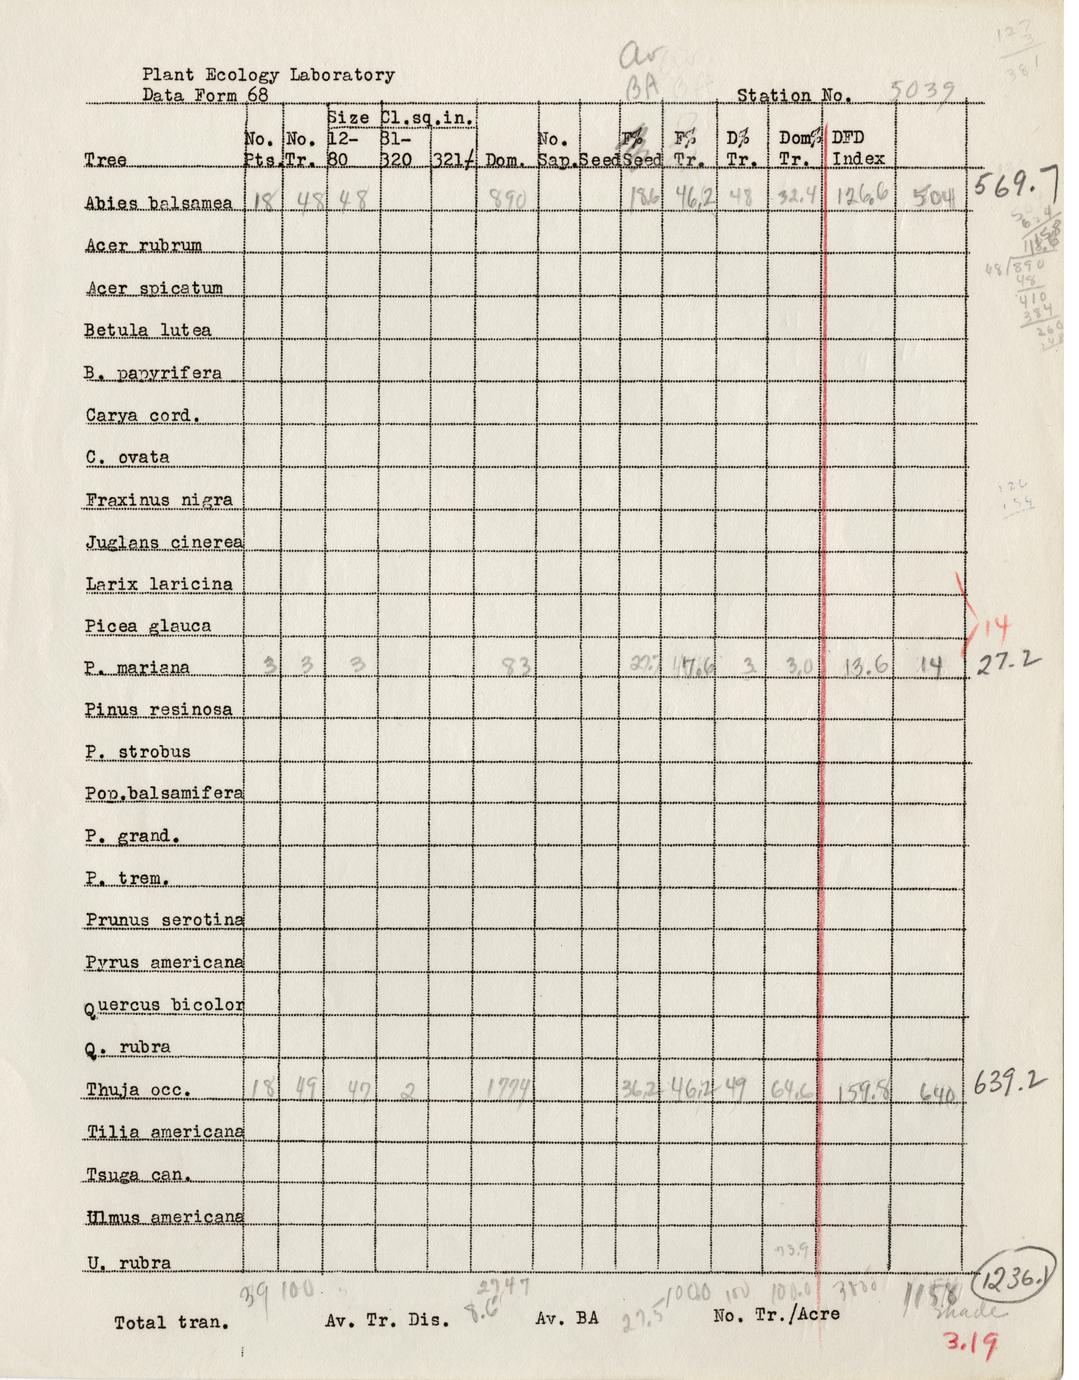 Av
BA
127
3
381
Plant Ecology Laboratory
Data Form 68
Station No. 5039
Size Cl.sq.in.
No. No. 12- 81- No. F% F% D% Dom% DFD
Tree Pts. Tr. 80 320 321+ Dom. Sap. Seed Seed Tr. Tr. Tr. Index
Abies balsamea 18 48 48 890 18.6 46.2 48 32.4 126.6 504 569.7
48/890
48
410
384
260
Acer rubrum
Acer spicatum
Betula lutea
B. papyrifera
Carya cord.
C. ovata
Fraxinus nigra
Juglans cinerea
Larix laricina
Picea glauca
14
P. mariana 3 3 3 83 27.7 7.6 3 3.0 13.6 14 27.2
Pinus resinosa
P. strobus
Pop.balsamifera
P. grand.
P. trem.
Prunus serotina
Pyrus americana
Quercus bicolor
Q. rubra
Thuja occ. 18 49 47 2 1774 36.2 46.2 49 64.6 159.8 640 639.2
Tilia americana
Tsuga can.
Ulmus americana
U. rubra
39 100 2747 100.0 100 100.0 1158 1236.1
Total tran. Av. Tr. Dis. 8.6 Av. BA 27.5 No. Tr./Acre shade
3.19